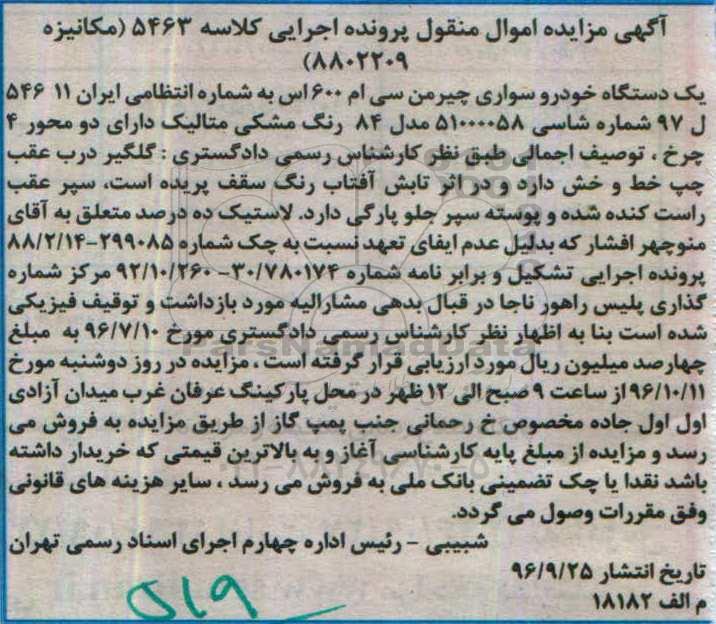 آگهی مزایده اموال منقول پرونده اجرایی کلاسه ۵۴۶۳ (مکانیزه
۸۸۰۲۲۰۹)
یک دستگاه خودرو سواری چیرمن سی ام ۶۰۰ اس به شماره انتظامی ایران ۱۱ ۵۴۶
ل ۹۷ شماره شاسی ۵۱۰۰۰۰۵۸ مدل ۸۴ رنگ مشکی متالیک دارای دو محور ۴
چرخ ، توصیف اجمالی طبق نظر کارشناس رسمی دادگستری : گلگیر درب عقب
چپ خط و خش دارد و در اثر تابش آفتاب رنگ سقف پریده است، سپر عقب
راست کنده شده و پوسته سپر جلو پارگی دارد. لاستیک ده درصد متعلق به آقای
منوچهر افشار که بدلیل عدم ایفای تعهد نسبت به چک شماره ۲۹۹۰۸۵-۸۸/۲/۱۴
پرونده اجرایی تشکیل و برابر نامه شماره ۳۰/۷۸۰۱۷۴- ۹۲/۱۰/۲۶۰ مرکز شماره
گذاری پلیس راهور ناجا در قبال بدهی مشارالیه مورد بازداشت و توقیف فیزیکی
شده است بنا به اظهار نظر کارشناس رسمی دادگستری مورخ ۹۶/۷/۱۰ به مبلغ
چهارصد میلیون ریال مورد ارزیابی قرار گرفته است ، مزایده در روز دوشنبه مورخ
۹۶/۱۰/۱۱ از ساعت ۹ صبح الی ۱۲ ظهر در محل پارکینگ عرفان غرب میدان آزادی
اول اول جاده مخصوص خ رحمانی جنب پمپ گاز از طریق مزایده به فروش می
رسد و مزایده از مبلغ پایه کارشناسی آغاز و به بالاترین قیمتی که خریدار داشته
باشد نقدا یا چک تضمینی بانک ملی به فروش می رسد ، سایر هزینه های قانونی
وفق مقررات وصول می گردد.
شبیبی - رئیس اداره چهارم اجرای اسناد رسمی تهران
تاریخ انتشار ۹۶/۹/۲۵
م الف ۱۸۱۸۲
ParsNamadData